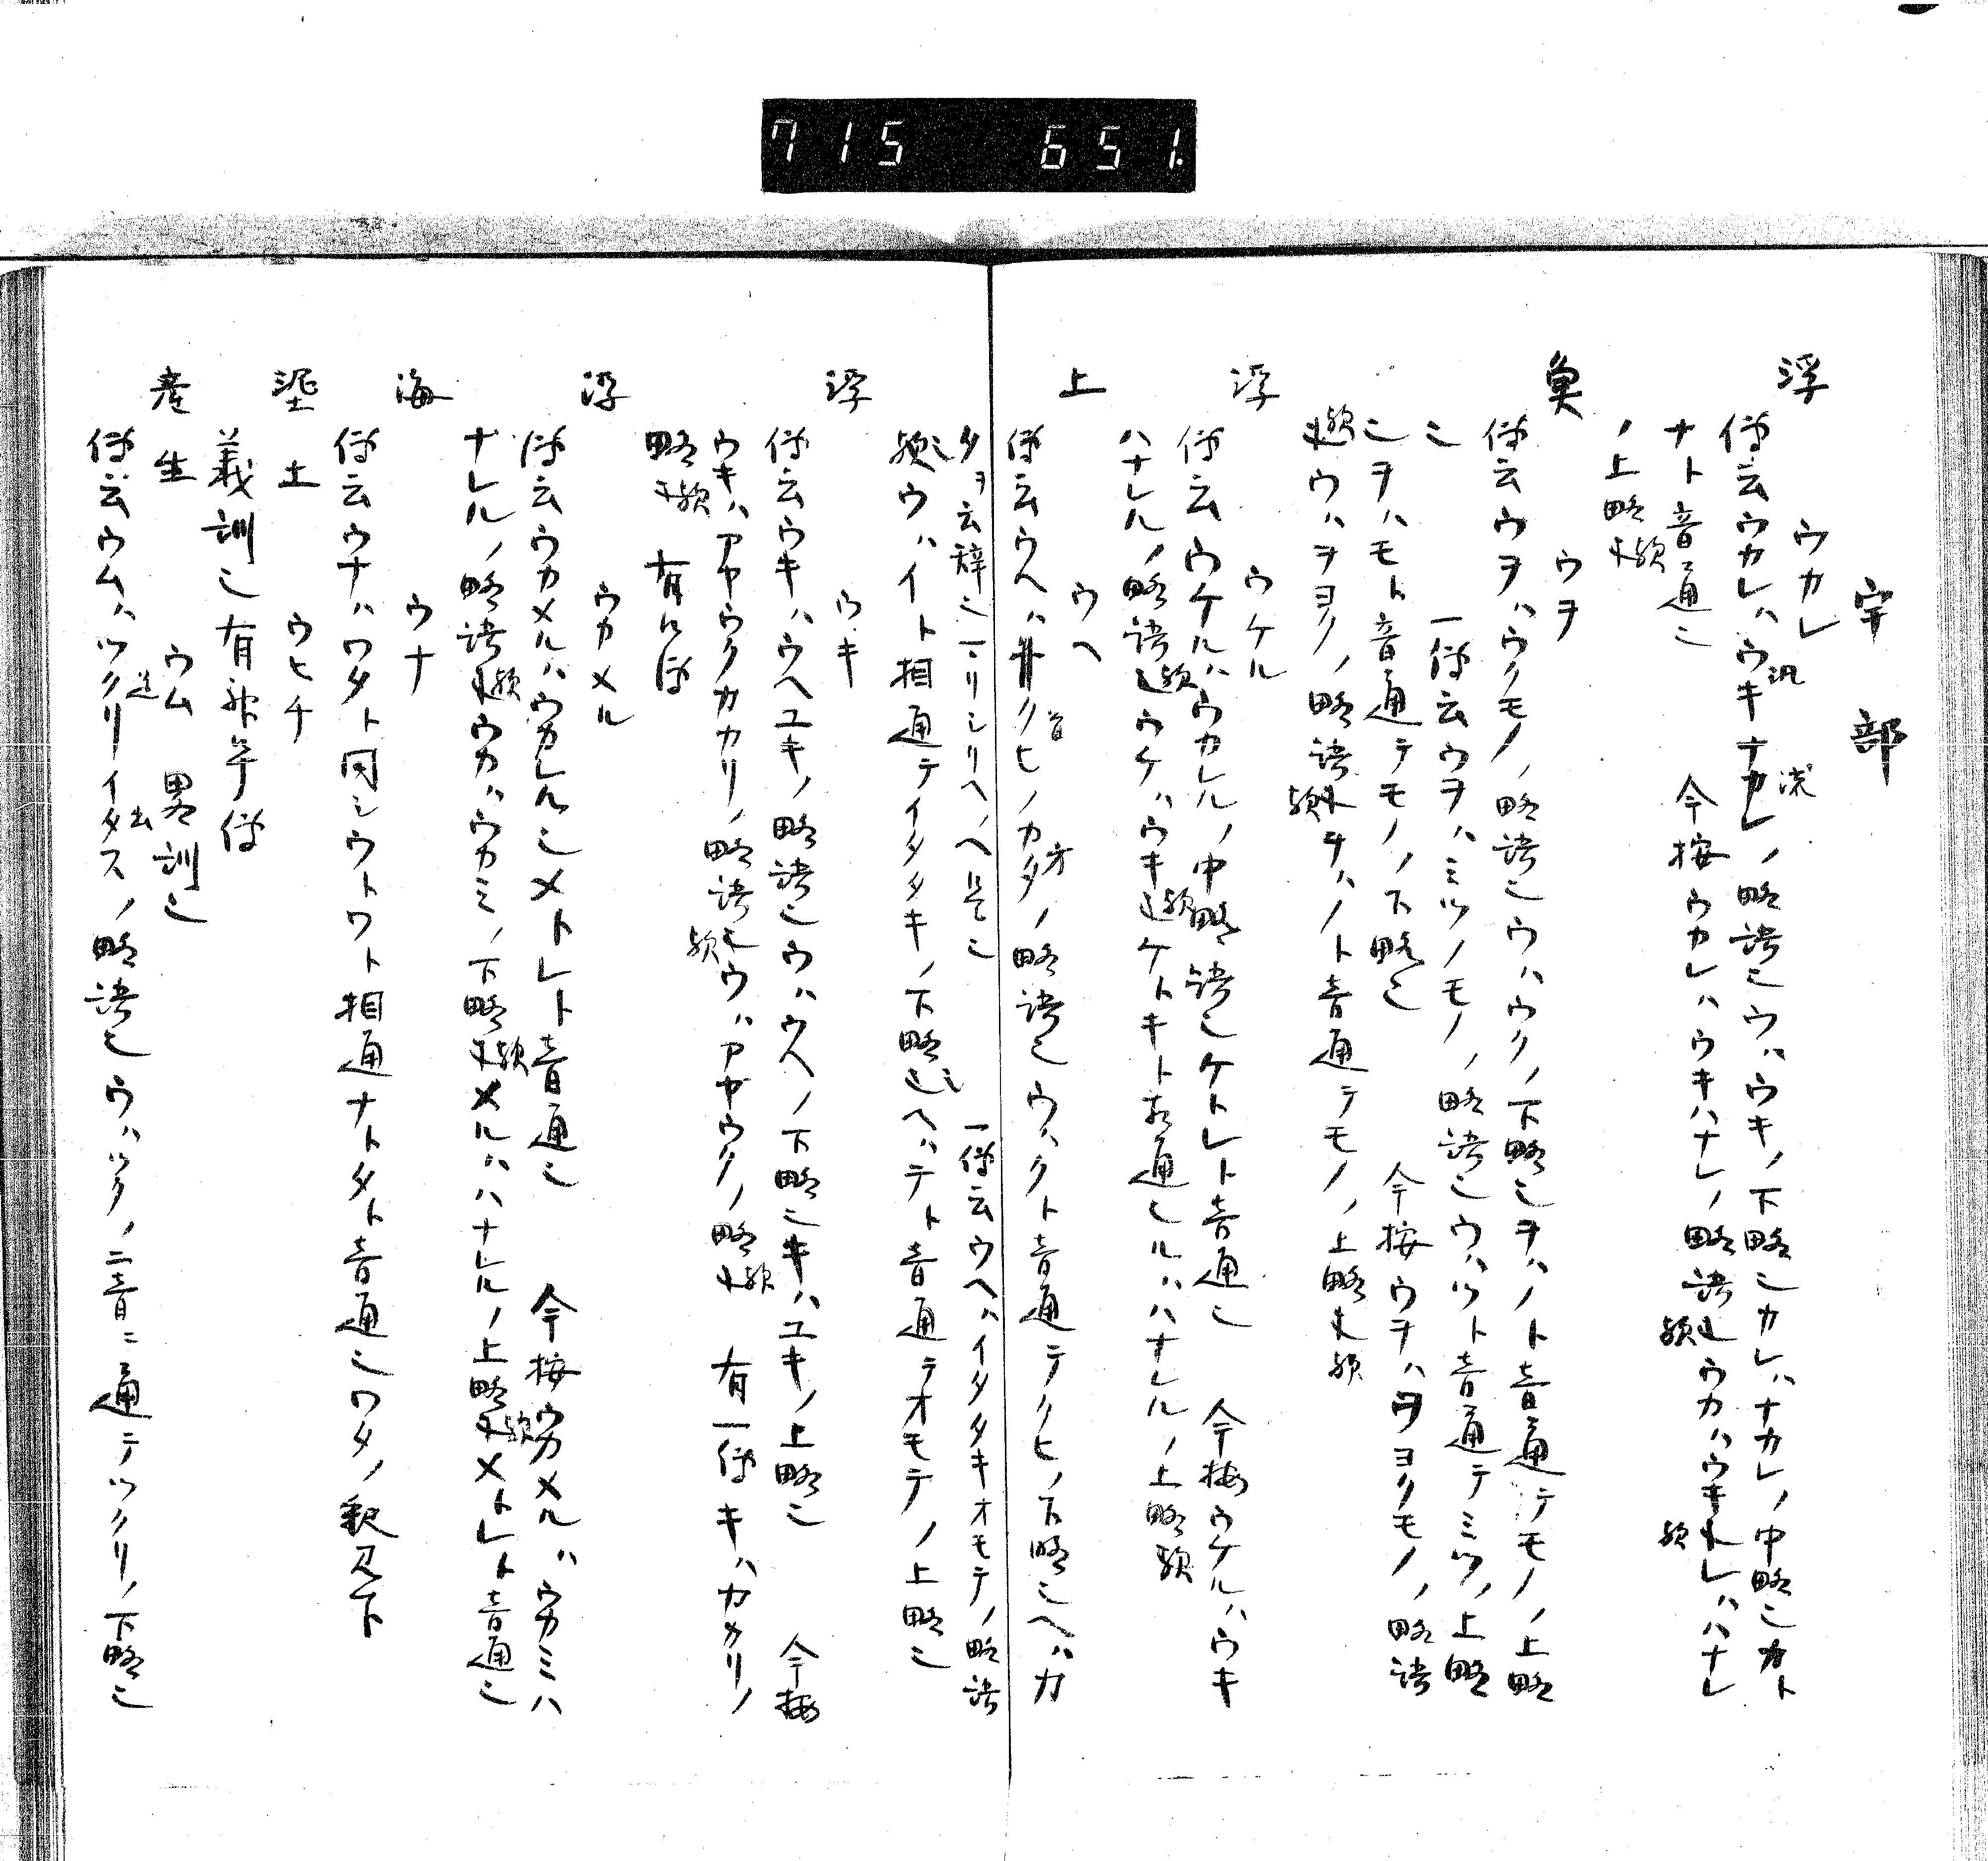 715 651.
宇部
浮 ウカレ
傳云ウカレハウキナカレノ略語也ウハウキノ下略也カレハナカレノ中略也カト
ナト音通也 今按ウカレハウキハナレノ略語歟ウカハウキ歟レハハナレ
ノ上略歟
魚 ウヲ
傳云ウヲハウクモノノ略語也ウハウクノ下略也ヲハノト音通テモノノ上略
也 一傳云ウヲハミツノモノノ略語也ウハツト音通テミツノ上略
也ヲハモト音通テモノノ下略也 今按ウヲハヲヨクモノノ略語
歟ウハヲヨクノ略語歟ヲハノト音通テモノノ上略歟
浮 ウケル
傳云ウケルハウカルノ中略語也ケトレト音通也 今按ウケルハウキ
ハナレルノ略語歟ウケハウキ歟ケトキト音通也ルハハナレルノ上略歟
上 ウヘ
傳云ウヘハクヒノカタノ略語也ウハクト音通テクヒノ下略也ヘハカ
タヲ云辞也 一傳云ウヘハイタタキオモテノ略語
歟ウハイト相通テイタタキノ下略也ヘハテト音通テオモテノ上略也
浮 ウキ
傳云ウキハウヘユキノ略語也ウハウヘノ下略也キハユキノ上略也 今按
ウキハアヤウクカカリノ略語歟ウハアヤウクノ略歟 有一傳キハカカリノ
略歟 有口傳
浮 ウカメル
傳云ウカメルハウカレル也メトレト音通也 今按ウカメルハウカミハ
ナレルノ略語歟ウカハウカミノ下略歟メルハハナレルノ上略歟メトレト音通也
海 ウナ
傳云ウナハワタト同シウトワト相通ナトタト音通也ワタノ釈見下
埿土 ウヒチ
義訓也有神字傳
産生 ウム 畧訓也
傳云ウムハツクリイタスノ略語也ウハツクノ二音ニ通テツクリノ下略也